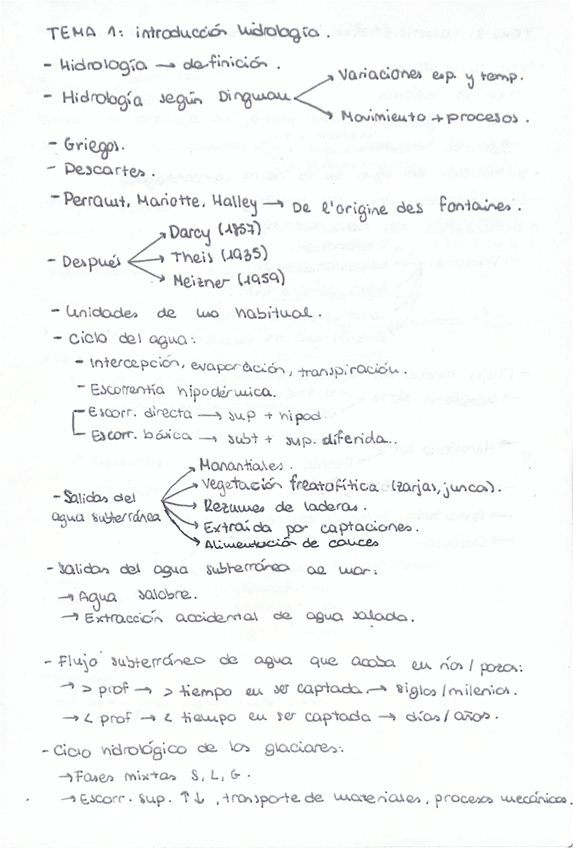 TEMA 1: introducción hidrología.
- Hidrología → definición.
- Hidrología según Dingman
→ Variaciones esp. y temp.
→ Movimiento + procesos.
- Griegos.
- Descartes.
- Perrault, Mariotte, Halley → De l'origine des fontaines.
- Después
→ Darcy (1857)
→ Theis (1935)
→ Meizner (1959)
- Unidades de uso habitual.
- Ciclo del agua:
- Intercepción, evaporación, transpiración.
- Escorrentía hipodérmica.
- Escorr. directa → sup + hipod.
- Escorr. básica → subt + sup. diferida...
- Salidas del agua subterránea
→ Manantiales.
→ Vegetación freatofítica (zarjas, juncos).
→ Rezumes de laderas.
→ Extraída por captaciones.
→ Alimentación de cauces
- Salidas del agua subterránea al mar:
→ Agua salobre.
→ Extracción accidental de agua salada.
- Flujo subterráneo de agua que acaba en ríos/pozos:
→ > prof → > tiempo en ser captada → siglos/milenios.
→ < prof → < tiempo en ser captada → días/años.
- Ciclo hidrológico de los glaciares:
→ Fases mixtas S, L, G.
→ Escorr. sup. ↑↓, transporte de materiales, procesos mecánicos.